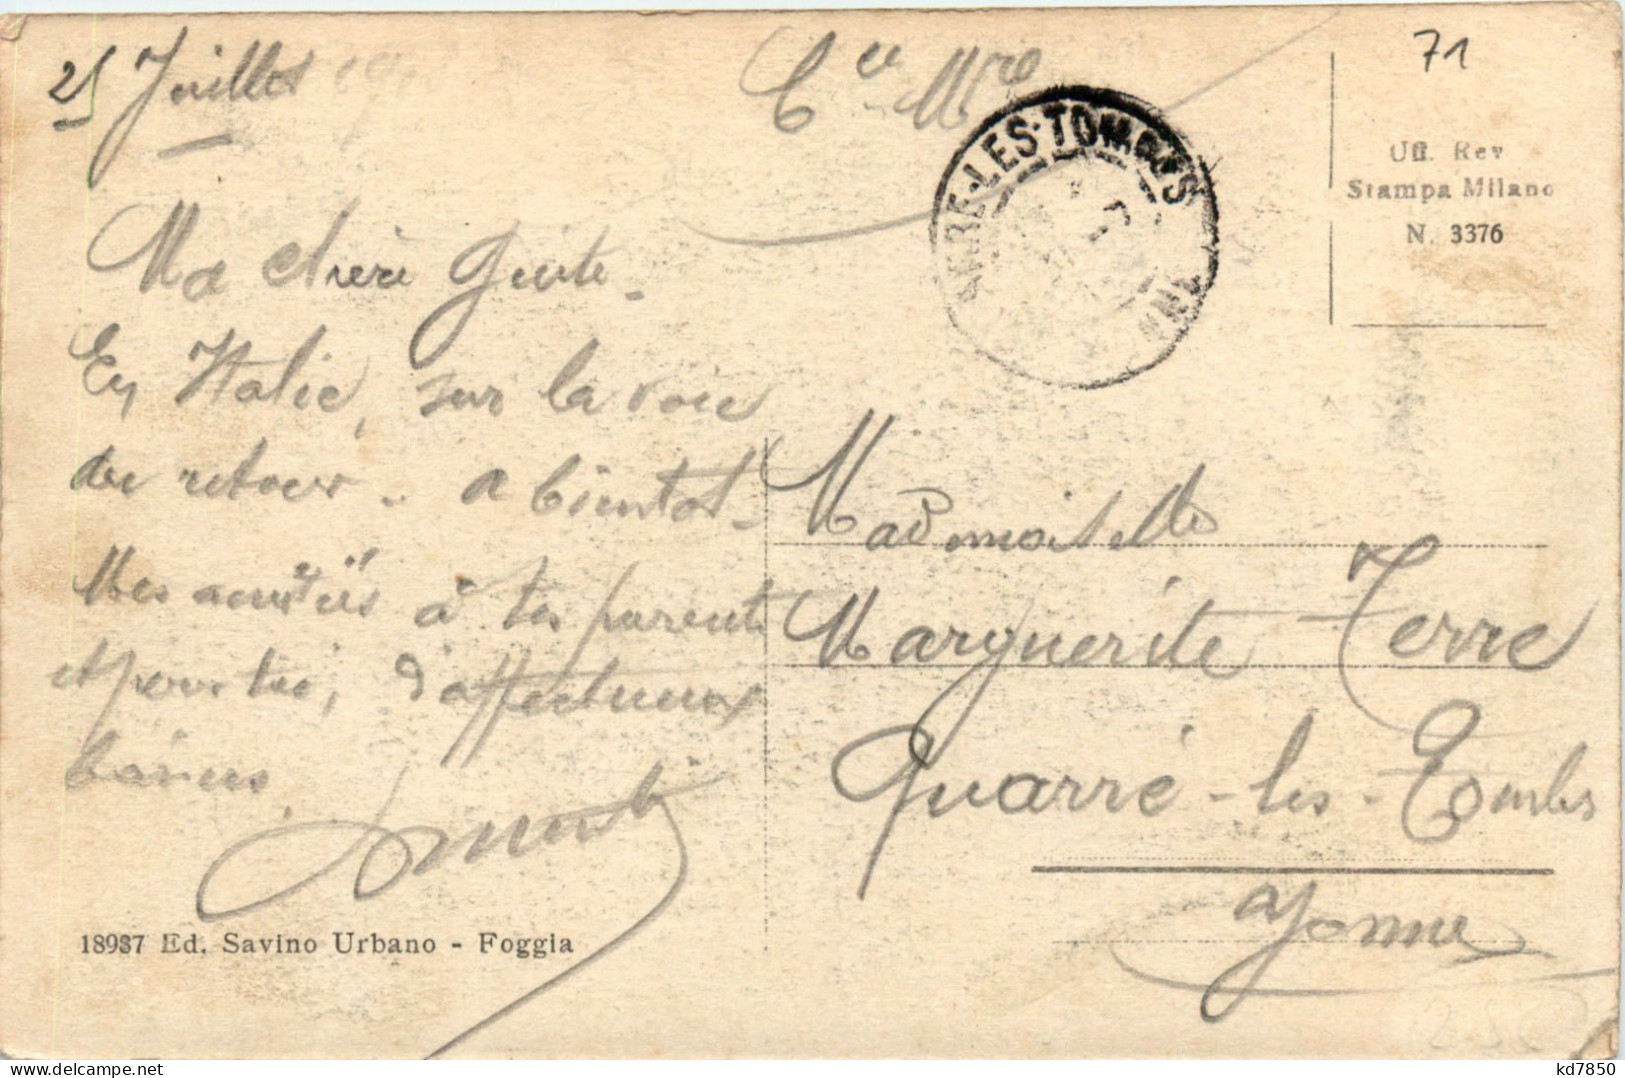 25 Juillet 191
Cce Mre
71
QUARRE-LES-TOMBES
YONNE
Uff. Rev
Stampa Milano
N. 3376
Ma chère Guite.
En Italie, sur la voie
du retour. - a bientôt -
Mes amitiés à tes parents
et pour toi, d'affectueux
baisers.
Mademoiselle
Marguerite Terre
Quarré-les-Tombes
Yonne
18937 Ed. Savino Urbano - Foggia
kd7850